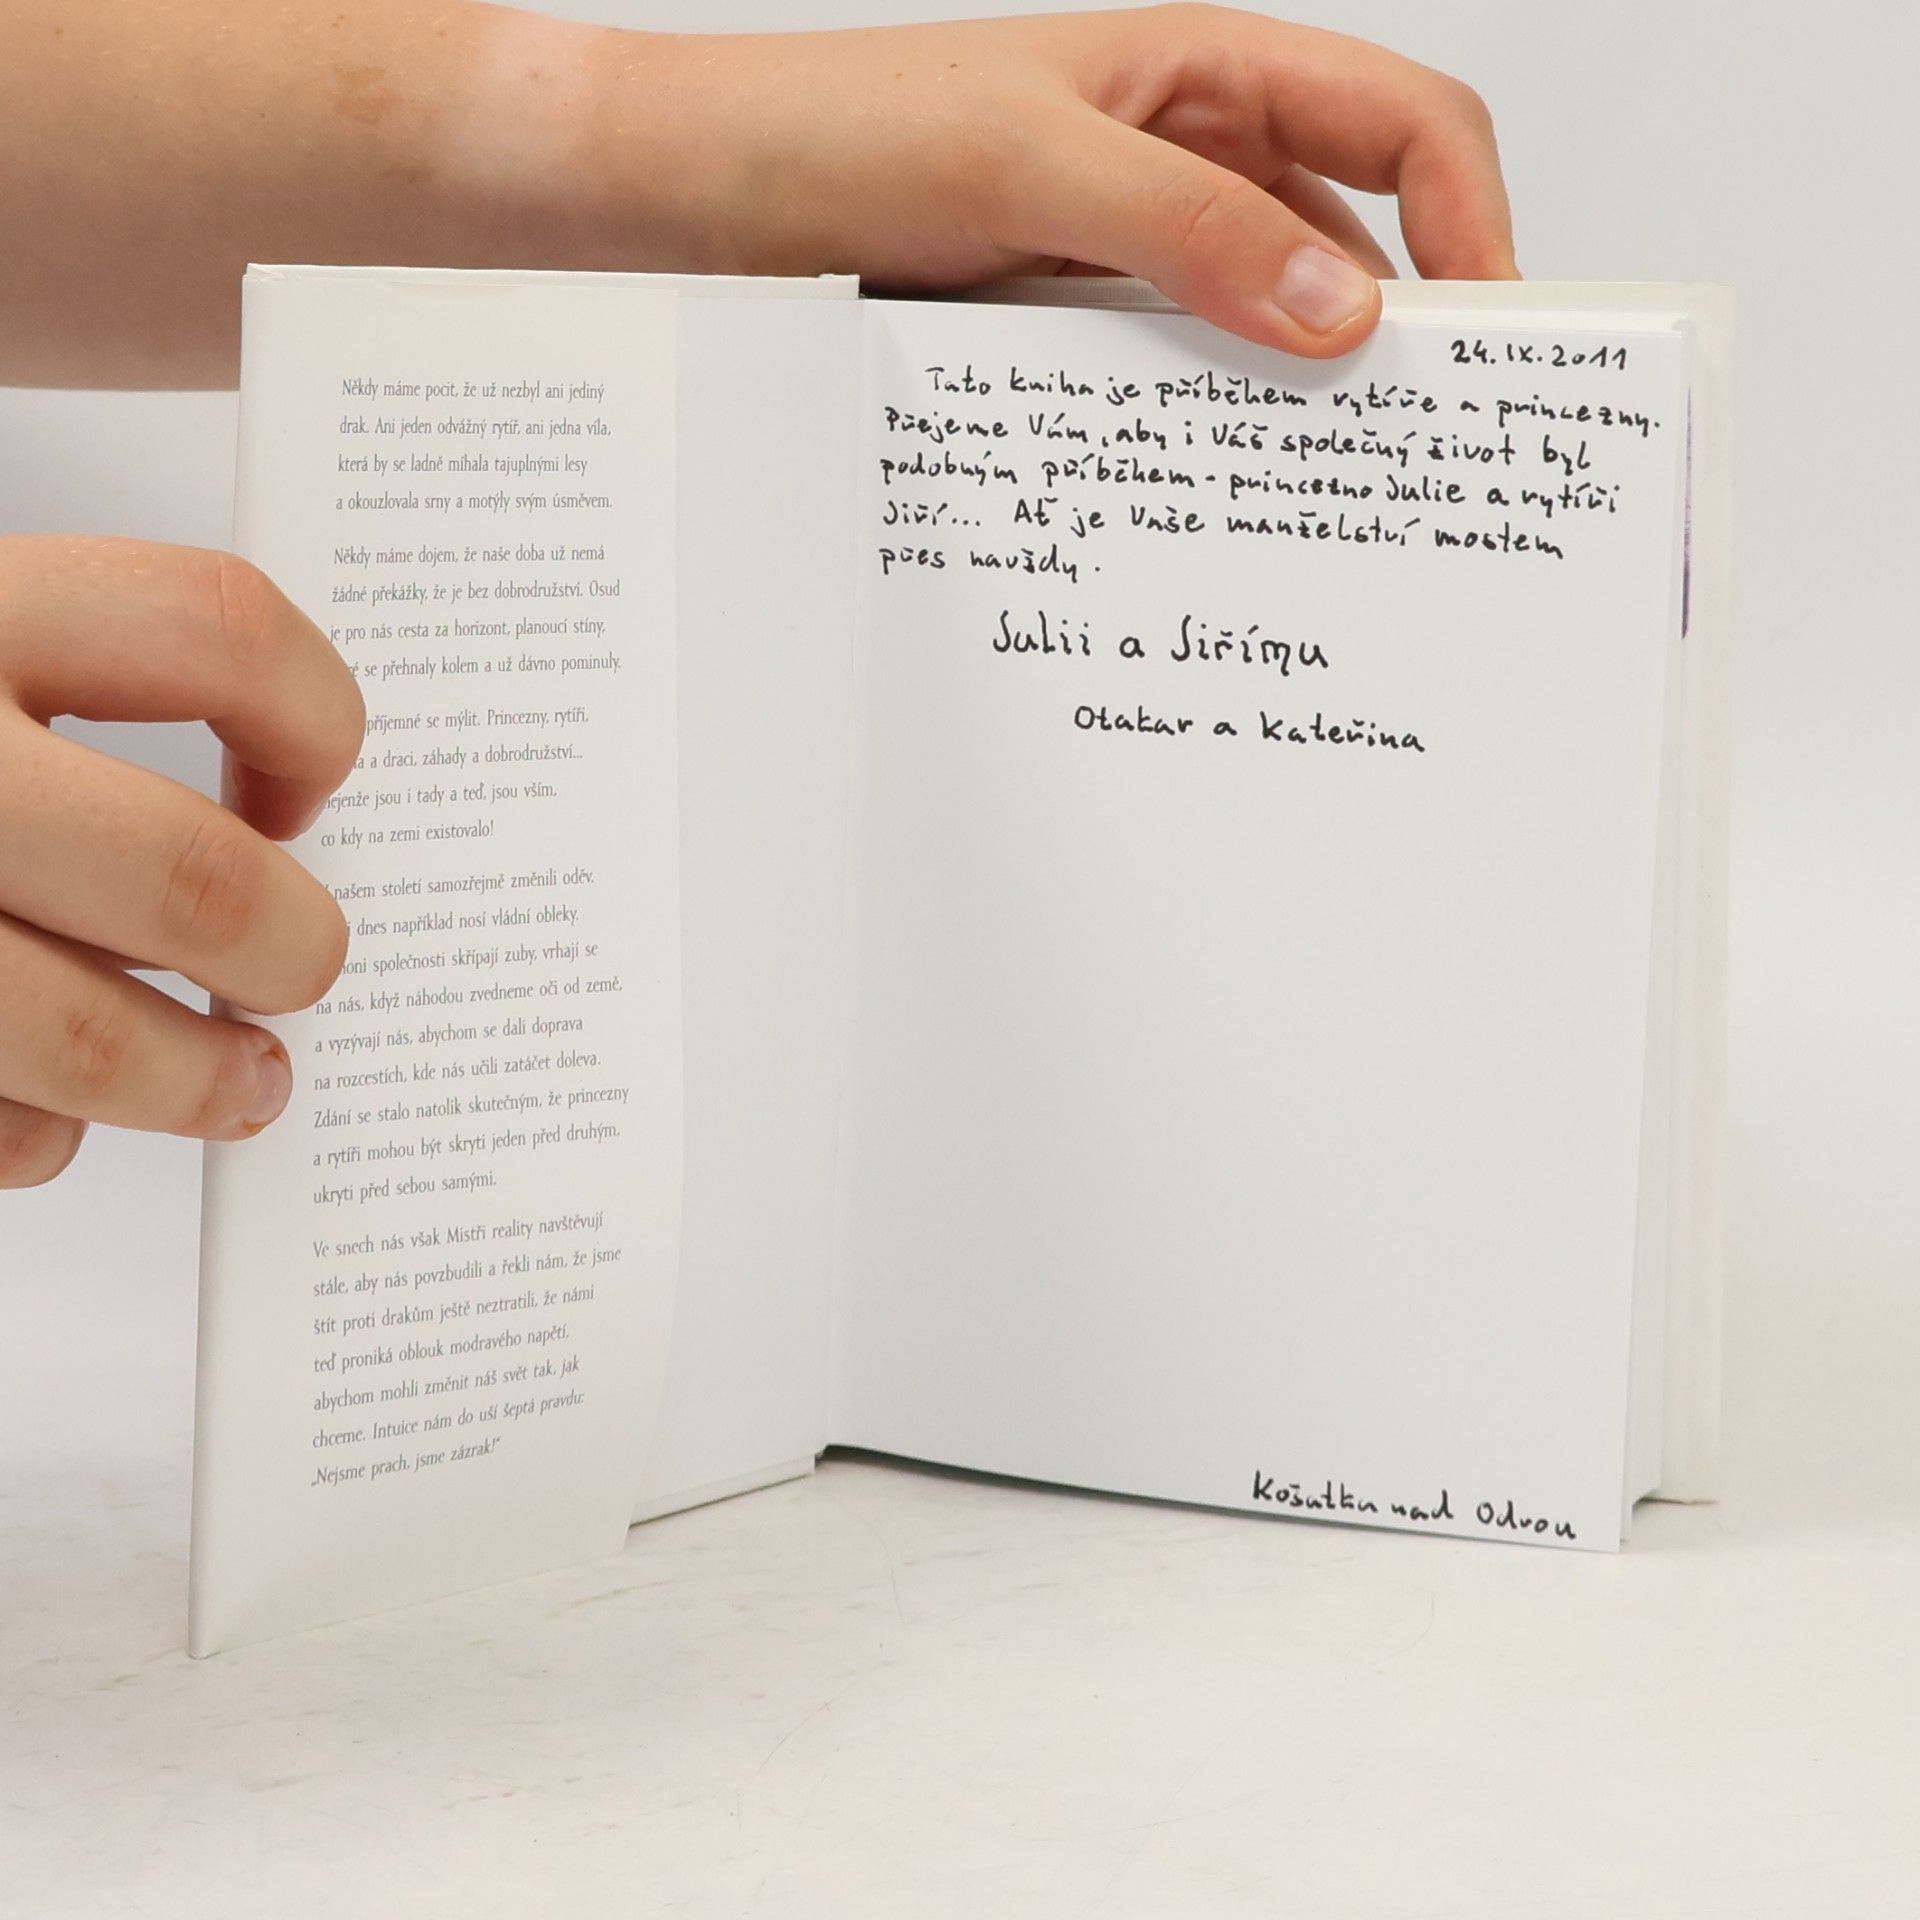 Někdy máme pocit, že už nezbyl ani jediný
drak. Ani jeden odvážný rytíř, ani jedna víla,
která by se ladně míhala tajuplnými lesy
a okouzlovala srny a motýly svým úsměvem.
Někdy máme dojem, že naše doba už nemá
žádné překážky, že je bez dobrodružství. Osud
je pro nás cesta za horizont, planoucí stíny,
se přehnaly kolem a už dávno pominuly.
příjemné se mýlit. Princezny, rytíři,
a draci, záhady a dobrodružství...
nejenže jsou i tady a teď, jsou vším,
co kdy na zemi existovalo!
našem století samozřejmě změnili oděv.
dnes například nosí vládní obleky.
společnosti skřípají zuby, vrhají se
na nás, když náhodou zvedneme oči od země,
a vyzývají nás, abychom se dali doprava
na rozcestích, kde nás učili zatáčet doleva.
Zdání se stalo natolik skutečným, že princezny
a rytíři mohou být skryti jeden před druhým,
ukryti před sebou samými.
Ve snech nás však Mistři reality navštěvují
stále, aby nás povzbudili a řekli nám, že jsme
štít proti drakům ještě neztratili, že námi
teď proniká oblouk modravého napětí,
abychom mohli změnit náš svět tak, jak
chceme. Intuice nám do uší šeptá pravdu:
„Nejsme prach, jsme zázrak!“
24. IX. 2011
Tato kniha je příběhem rytíře a princezny.
Přejeme Vám, aby i Váš společný život byl
podobným příběhem - princezno Julie a rytíři
Jiří... Ať je Vaše manželství mostem
přes navždy.
Julii a Jiřímu
Otakar a Kateřina
Košatka nad Odrou